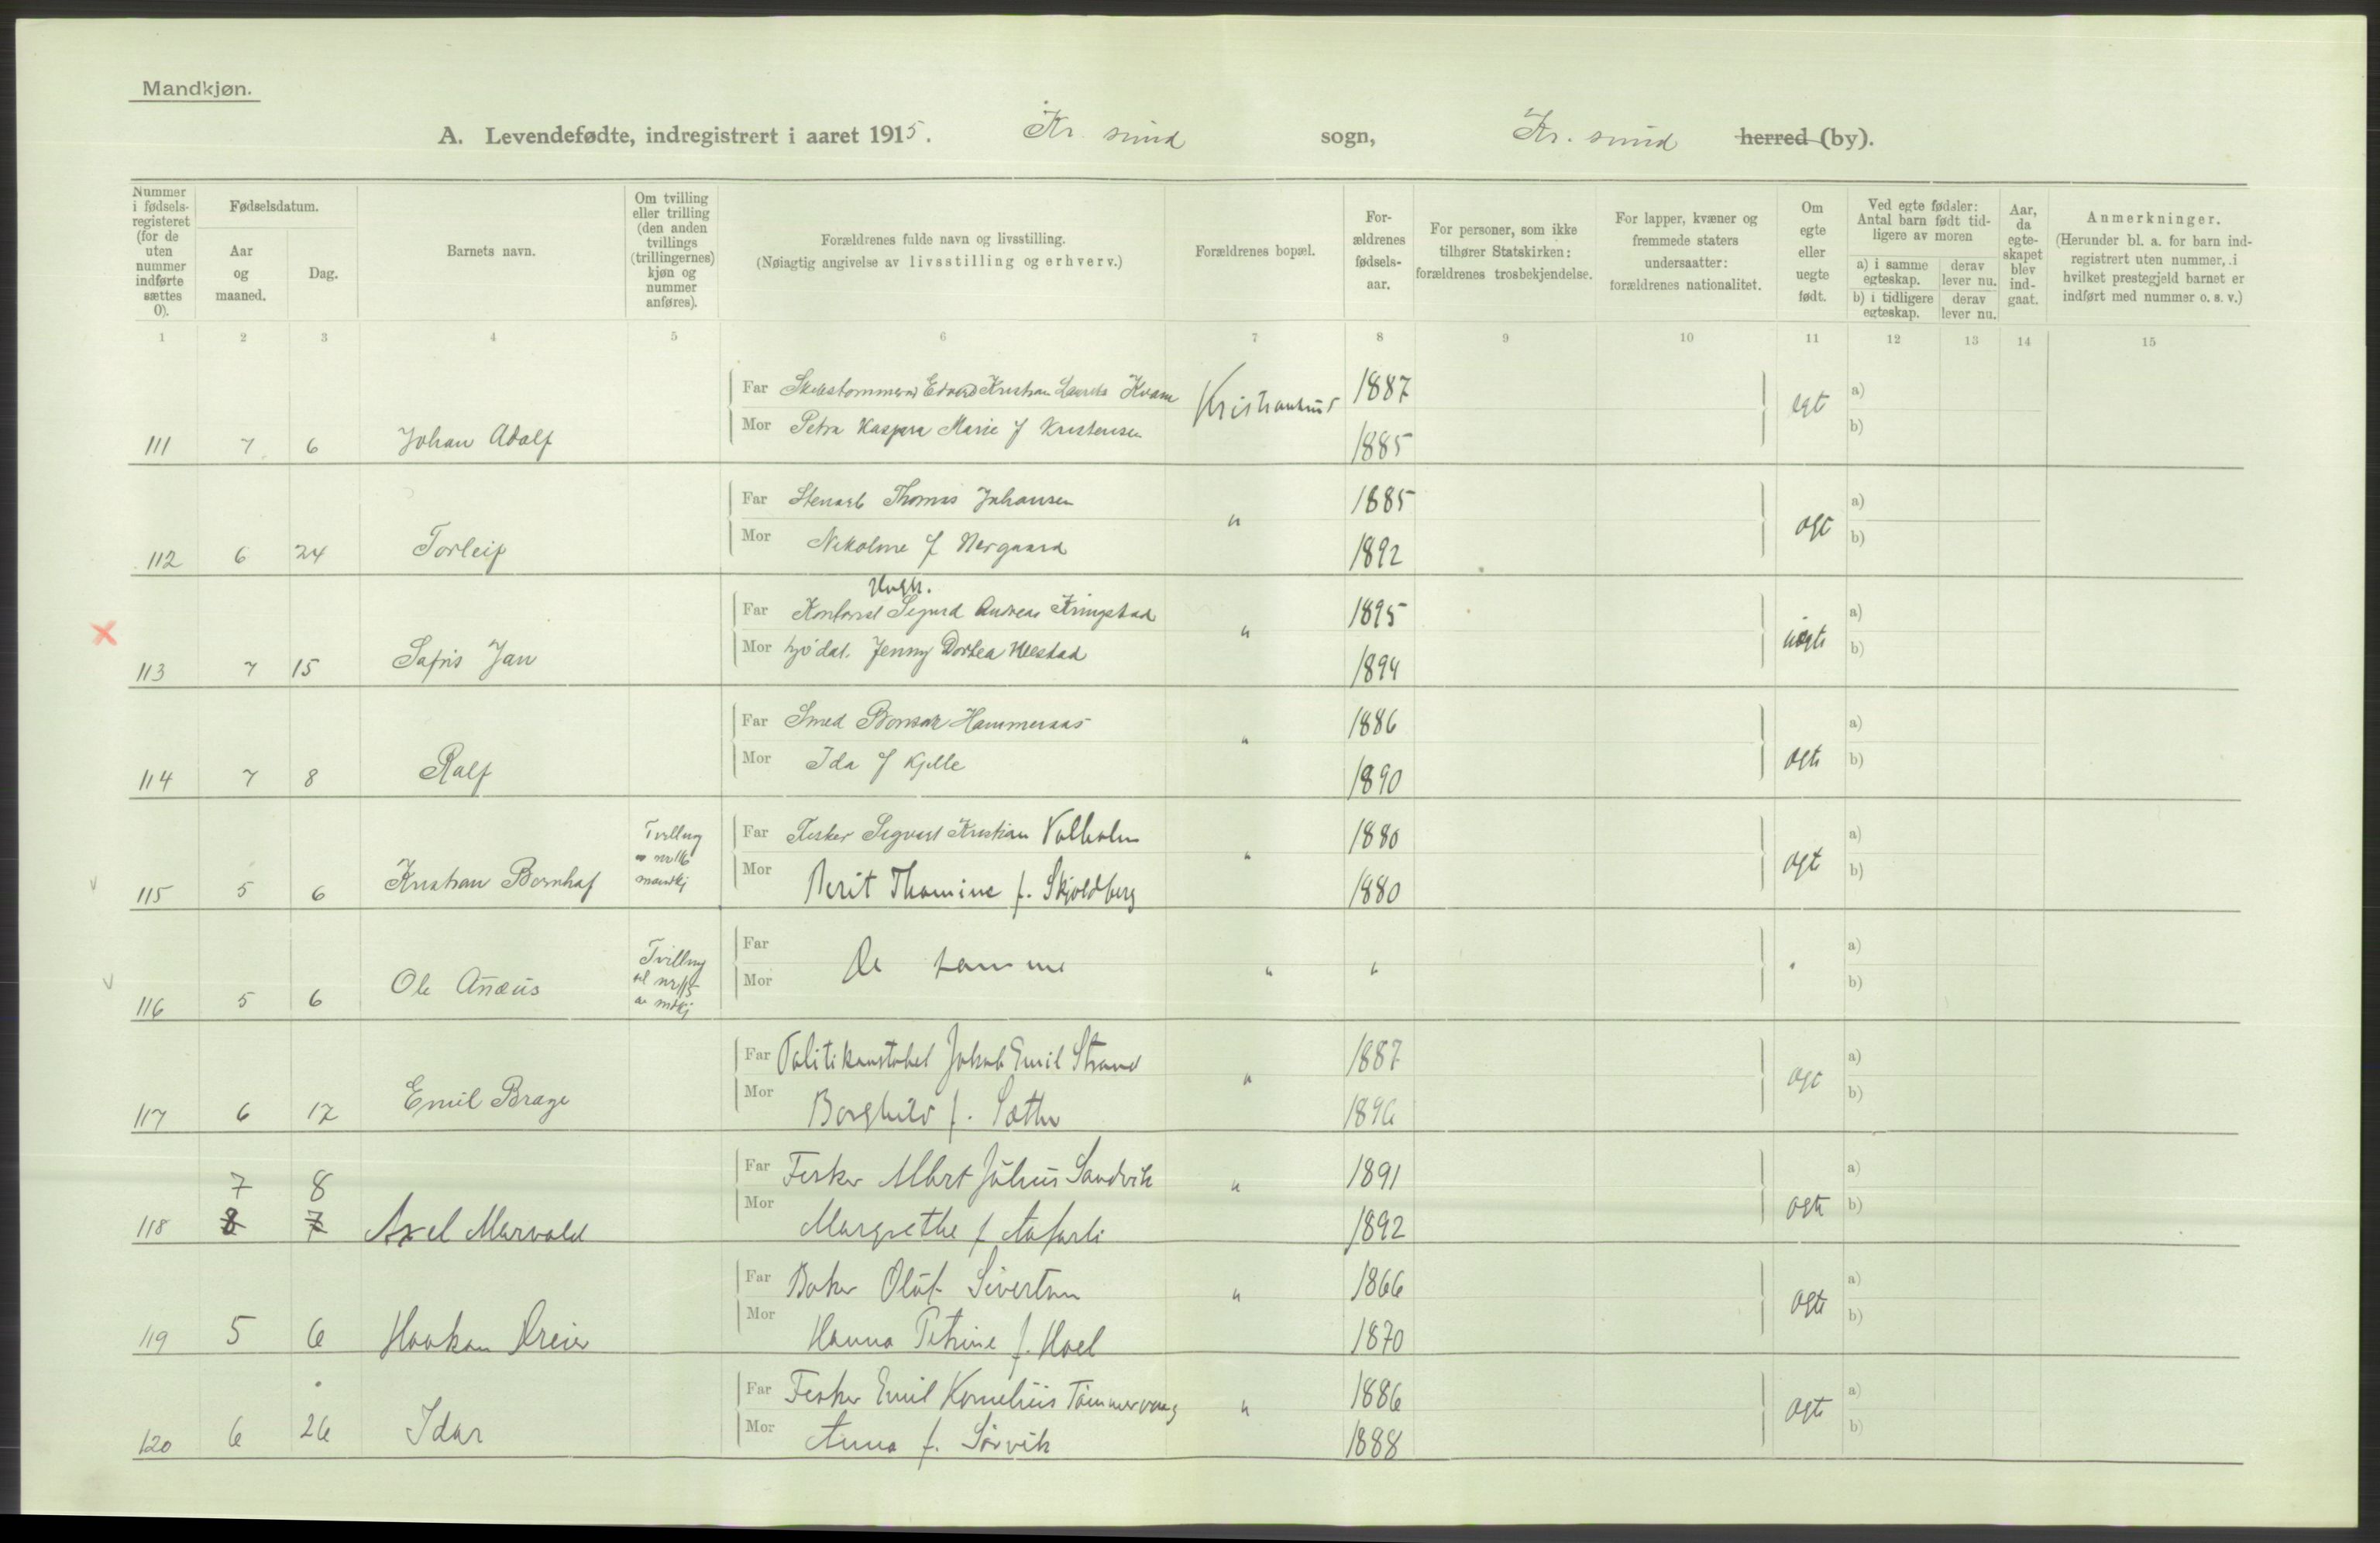 Mandkjøn.
A. Levendefødte, indregistrert i aaret 1915. Kr. sund sogn, Kr. sund herred (by).
Nummer i fødsels-registeret (for de uten nummer indførte sættes 0).
Fødselsdatum.
Aar og maaned.
Dag.
Barnets navn.
Om tvilling eller trilling (den anden tvillings (trillingernes) kjøn og nummer anføres).
Forældrenes fulde navn og livsstilling.
(Nøiagtig angivelse av livsstilling og erhverv.)
Forældrenes bopæl.
For-ældrenes fødsels-aar.
For personer, som ikke tilhører Statskirken: forældrenes trosbekjendelse.
For lapper, kvæner og fremmede staters undersaatter: forældrenes nationalitet.
Om egte eller uegte født.
Ved egte fødsler: Antal barn født tid-ligere av moren
a) i samme egteskap. derav lever nu.
b) i tidligere egteskap. derav lever nu.
Aar, da egte-skapet blev ind-gaat.
Anmerkninger.
(Herunder bl. a. for barn ind-registrert uten nummer, i hvilket prestegjeld barnet er indført med nummer o. s. v.)
1 2 3 4 5 6 7 8 9 10 11 12 13 14 15
Far Edvard Kristian Kvam Kristiansund 1887 egt a)
111 7 6 Johan Adolf Mor Petra Kaspara Marie f Kristensen 1885 b)
Far Stenarb Thomas Johansen " 1885 egt a)
112 6 24 Torleif Mor Nikoline f Nergaard 1892 b)
Ungk.
Far Kontorist Sigurd Andreas Kringstad " 1895 uegte a)
113 7 15 Jan Mor Jenny Dortea 1894 b)
Far Smed Hammeraas " 1886 egte a)
114 7 8 Ralf Mor Ida f Kjelle 1890 b)
Far Fisker Sigvart Kristian Valholm " 1880 egt a)
115 5 6 Kristian Bernhof Tvilling nr 116 mandkj Mor Berit Thomine f. Skjoldberg 1880 b)
Far De samme " " " a)
116 5 6 Ole Anæus Tvilling til nr 115 Mor b)
Far Politikonstabel Jakob Emil Strand " 1887 egt a)
117 6 17 Emil Brage Mor Borghild f. Sæther 1896 b)
7 8 Far Fisker Albert Julius Sandvik " 1891 egte a)
118 8 7 Axel Marvald Mor Margrethe f 1892 b)
Far Baker Oluf Sivertsen " 1866 egte a)
119 5 6 Haakon Dreier Mor Hanna Petrine f. Hoel 1870 b)
Far Fisker Emil Kornelius Tømmervaag " 1886 egte a)
120 6 26 Idar Mor Anna f. Sørvik 1888 b)